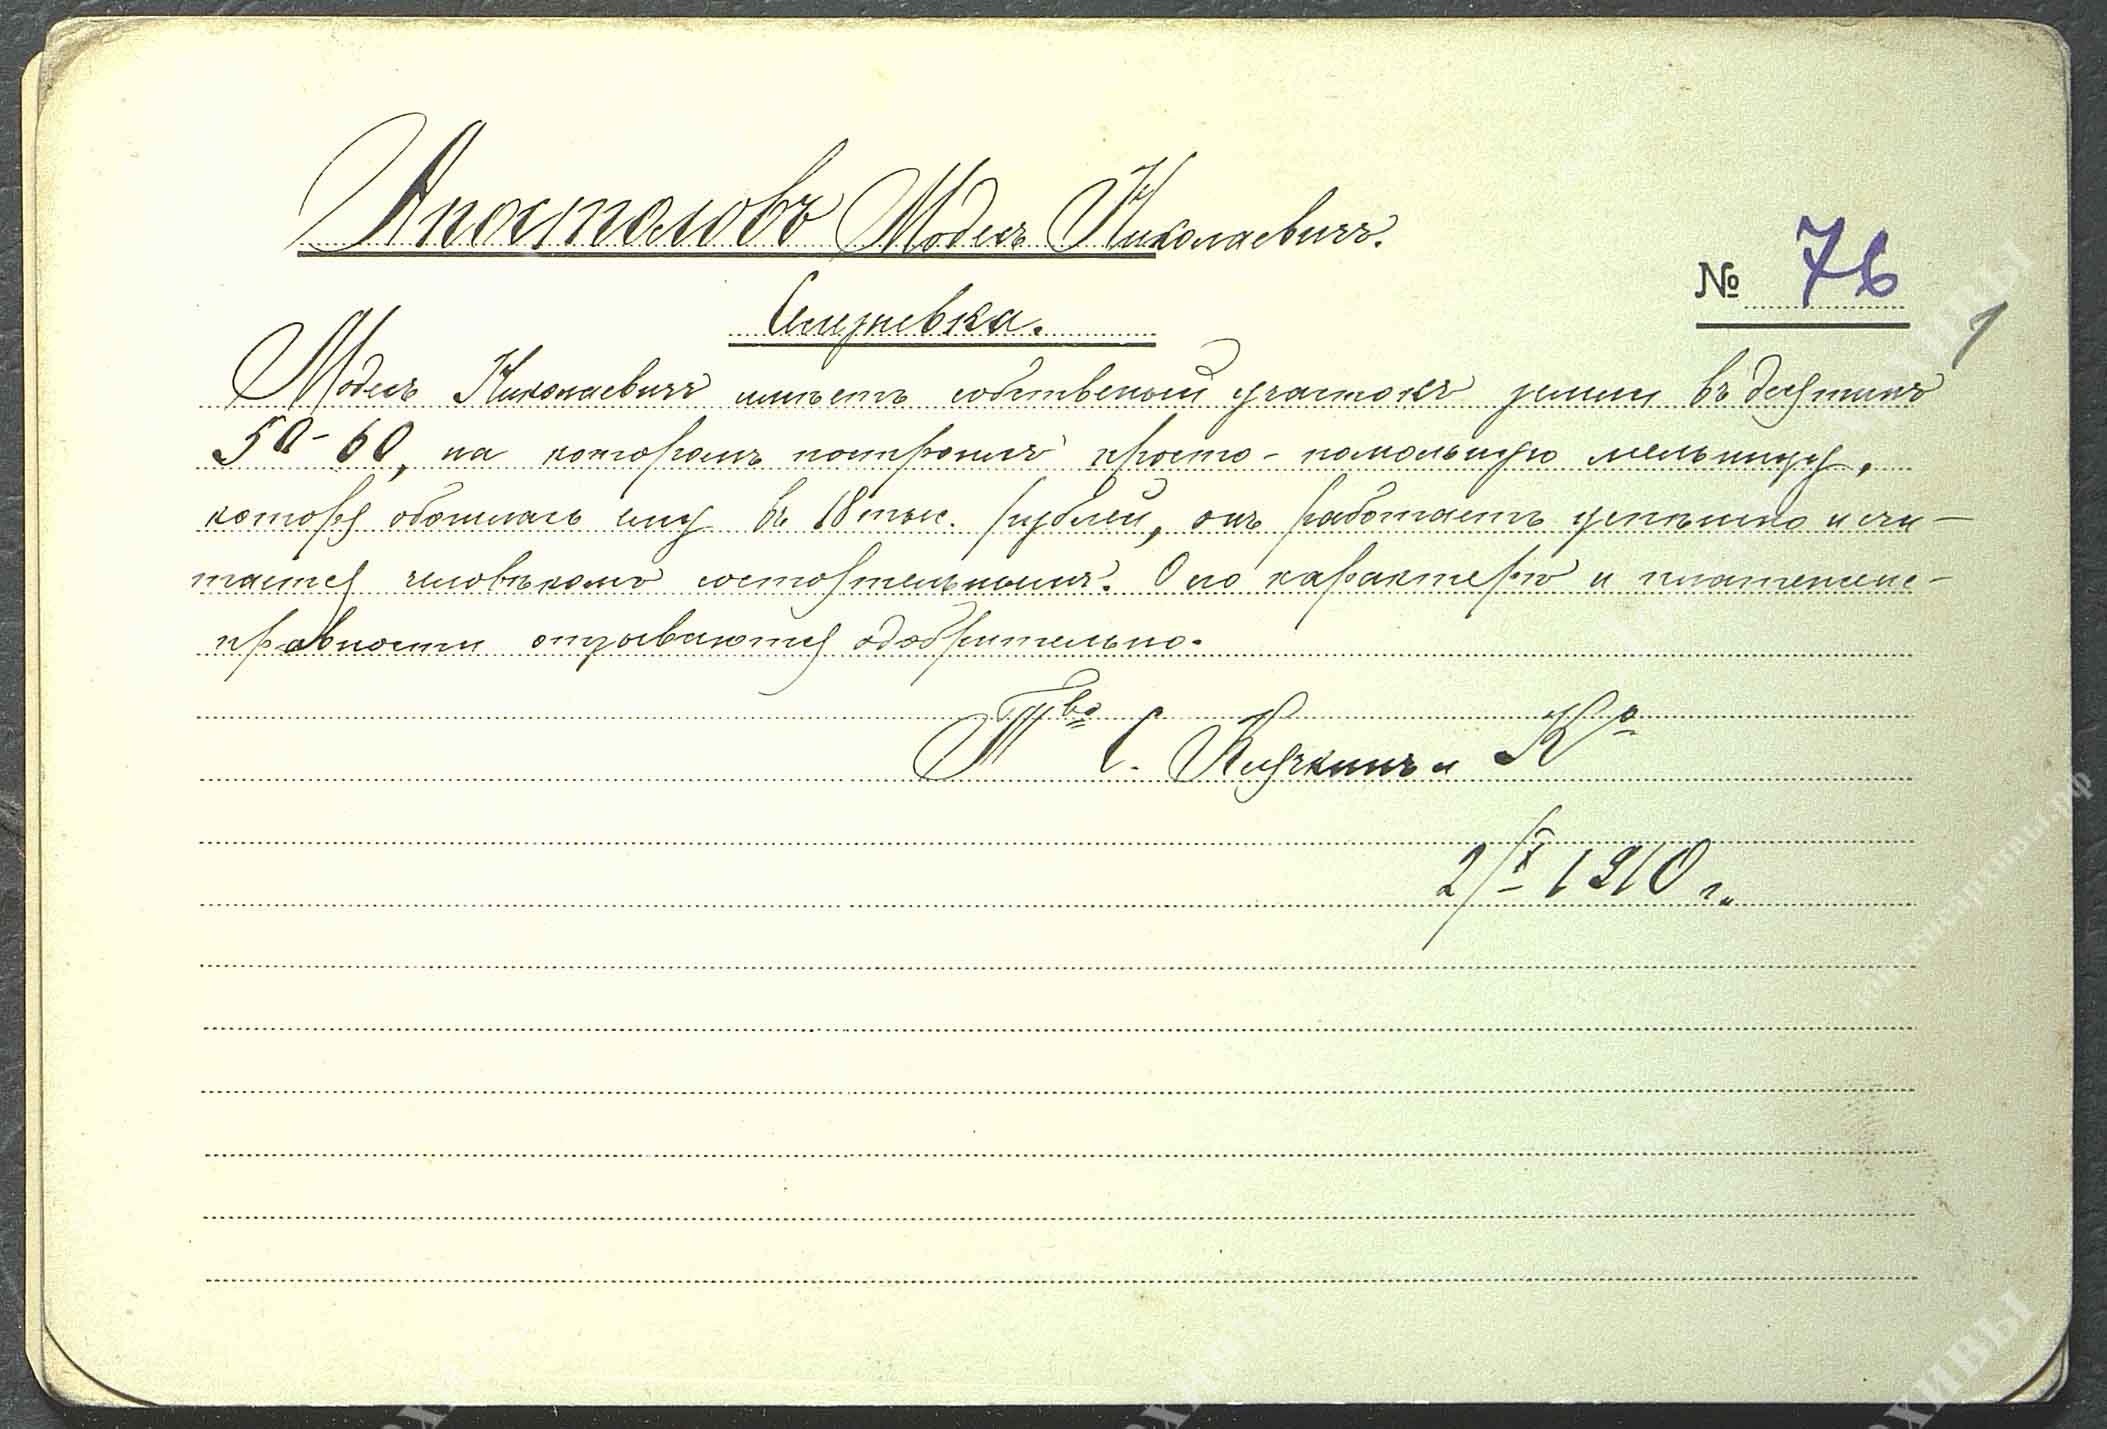 Апостоловъ Модестъ Николаевичъ.
№ 76
1
Модестъ Николаевичъ имѣетъ собственный участокъ земли въ десятинъ
50-60, на которомъ построилъ просто-помольную мельницу,
которая обошлась ему въ 18 тыс. рублей, онъ работаетъ успѣшно и счи-
тается человѣкомъ состоятельнымъ. О его характерѣ и платежеис-
правности отзываются одобрительно.
Тво С. и Ко
2/X 1910 г.
архивы